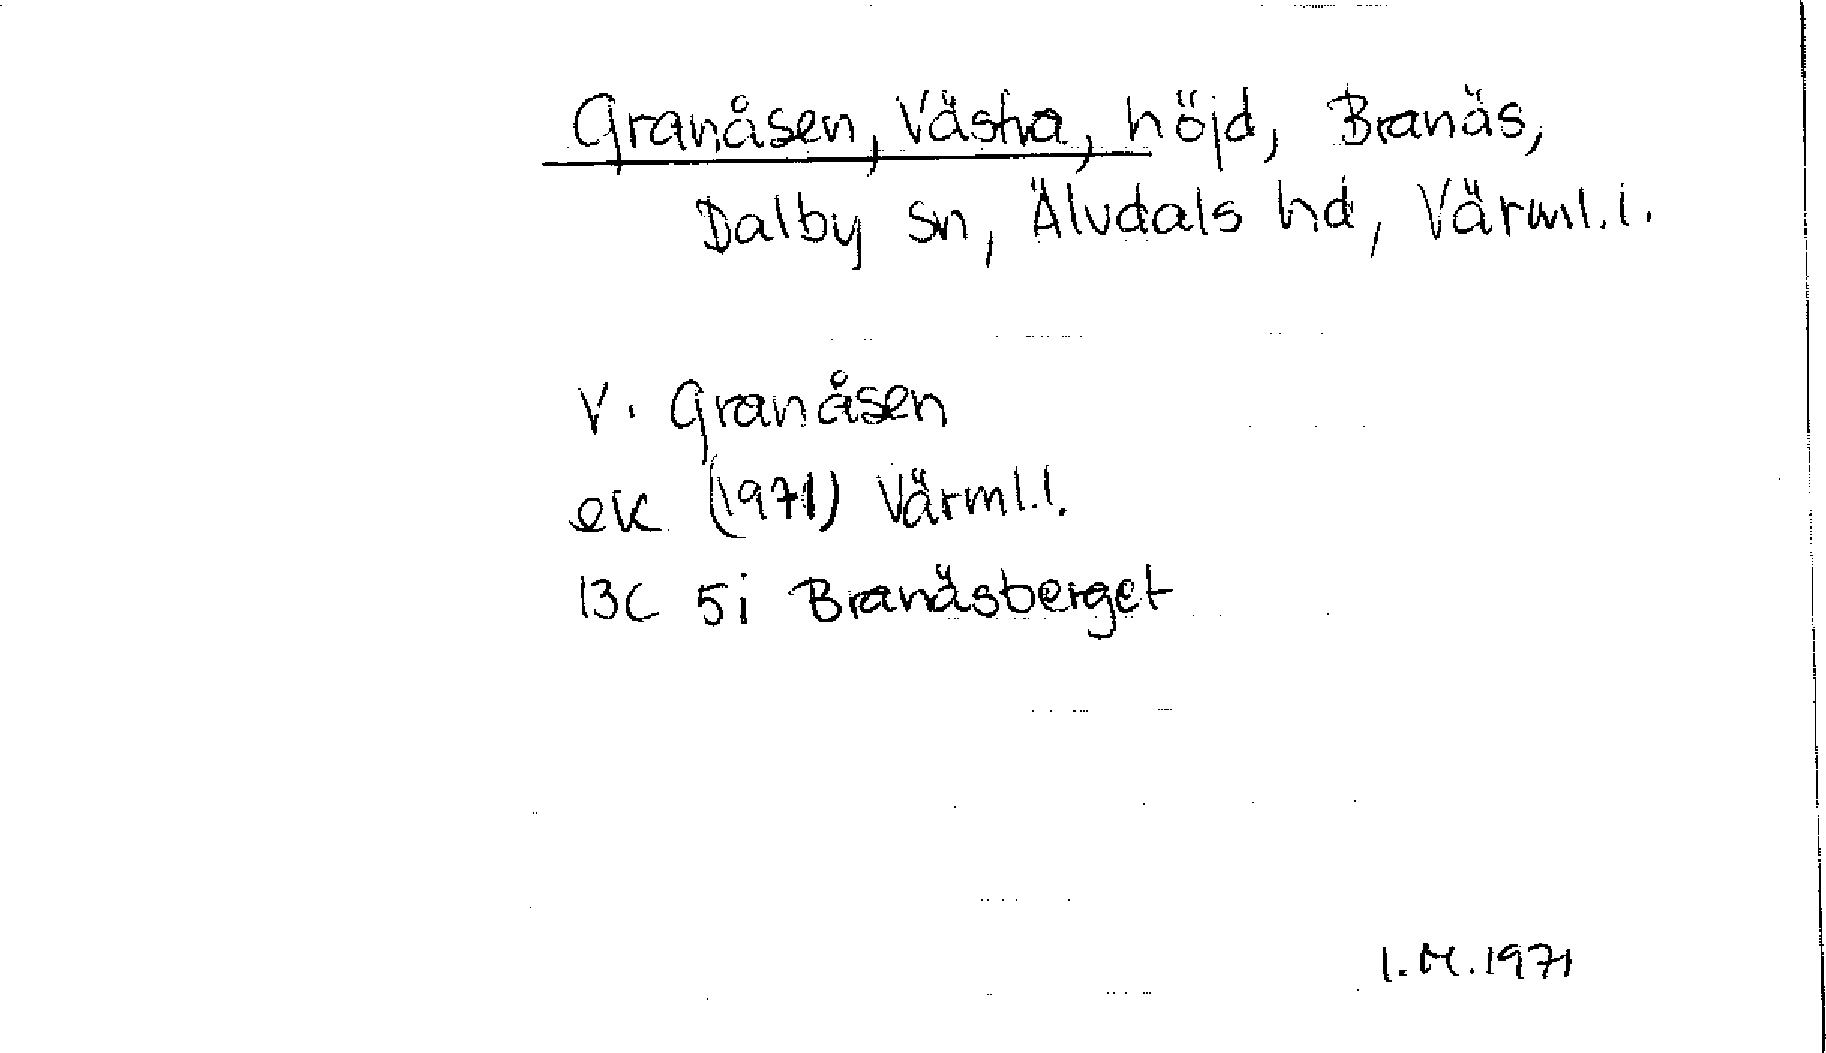 Granåsen, Västra, höjd, Branäs,
Dalby sn, Älvdals hd, Värml.l.
V. Granåsen
ek (1971) Värml.l.
13C 5i Branäsberget
I.M.1971